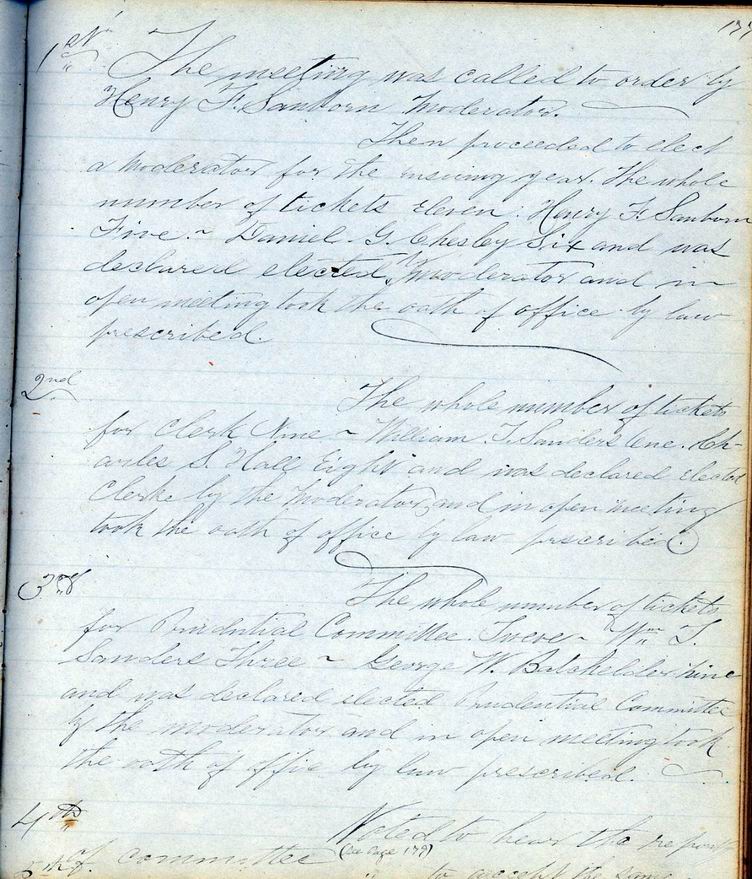 1st The meeting was called to order by
Henry F. Sanborn Moderator.
Then proceeded to elect
a Moderator for the insuing year. The whole
number of tickets Eleven. Henry F. Sanborn
Five ~ Daniel G. Chesley Six and was
declared elected, moderator and in
open meeting took the oath of office by law
prescribed.
2nd The whole number of tickets
for Clerk Nine ~ William T. Sanders One. Ch-
arles S. Hall Eight and was declared elected
Clerk by the Moderator, and in open meeting
took the oath of office by law prescribed.
3rd The whole number of tickets
for Prudential Committee Twelve ~ Wm T.
Sanders Three ~ George W. Batchelder Nine
and was declared elected Prudential Committee
by the moderator and in open meeting took
the oath of office by law prescribed.
4th Voted to hear the report
of committee (see page 179)
5th " to accept the same